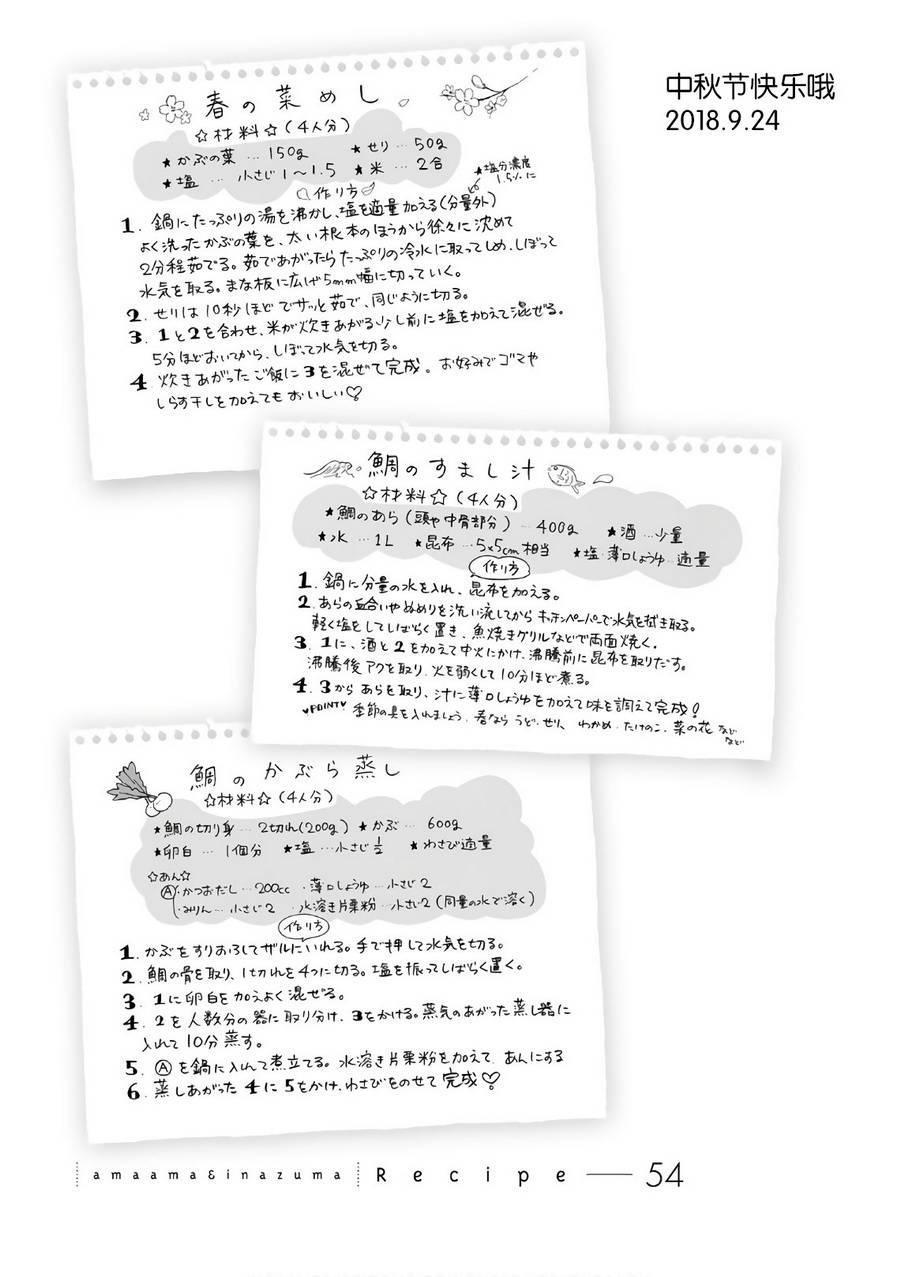 中秋节快乐哦
2018.9.24
春の菜めし
☆材料☆(4人分)
★かぶの葉…150g ★せり…50g
★塩…小さじ1〜1.5 ★米…2合
作り方
★塩分濃度
1.5%に
1. 鍋にたっぷりの湯を沸かし、塩を適量加える(分量外)
よく洗ったかぶの葉を、太い根本のほうから徐々に沈めて
2分程茹でる。茹であがったらたっぷりの冷水に取ってしめ、しぼって
水気を取る。まな板に広げ5mm幅に切っていく。
2. せりは10秒ほどでサッと茹で、同じように切る。
3. 1と2を合わせ、米が炊きあがる少し前に塩を加えて混ぜる。
5分ほどおいてから、しぼって水気を切る。
4 炊きあがったご飯に3を混ぜて完成。お好みでゴマや
しらす干しを加えてもおいしい♡
鯛のすまし汁
☆材料☆(4人分)
★鯛のあら(頭や中骨部分)…400g ★酒…少量
★水…1L ★昆布…5×5cm相当 ★塩・薄口しょうゆ…適量
作り方
1. 鍋に分量の水を入れ、昆布を加える。
2. あらの血合いやぬめりを洗い流してからキッチンペーパーで水気を拭き取る。
軽く塩をしてしばらく置き、魚焼きグリルなどで両面焼く。
3. 1に、酒と2を加えて中火にかけ、沸騰前に昆布を取りだす。
沸騰後アクを取り、火を弱くして10分ほど煮る。
4. 3からあらを取り、汁に薄口しょうゆを加えて味を調えて完成!
♥POINT♥ 季節の具を入れましょう。春なら うど、せり、わかめ・たけのこ、菜の花 など
など
鯛のかぶら蒸し
☆材料☆(4人分)
★鯛の切り身…2切れ(200g) ★かぶ…600g
★卵白…1個分 ★塩…小さじ1/2 ★わさび適量
☆あん☆
Ⓐ・かつおだし…200cc ・薄口しょうゆ…小さじ2
・みりん…小さじ2 ・水溶き片栗粉…小さじ2(同量の水で溶く)
作り方
1. かぶをすりおろしてザルにいれる。手で押して水気を切る。
2. 鯛の骨を取り、1切れを4つに切る。塩を振ってしばらく置く。
3. 1に卵白を加えよく混ぜる。
4. 2を人数分の器に取り分け、3をかける。蒸気のあがった蒸し器に
入れて10分蒸す。
5. Ⓐを鍋に入れて煮立てる。水溶き片栗粉を加えて、あんにする
6. 蒸しあがった4に5をかけ、わさびをのせて完成♡
amaama&inazuma Recipe — 54